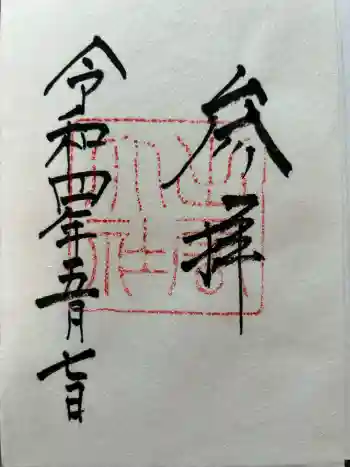 参拝
令和四年五月七日